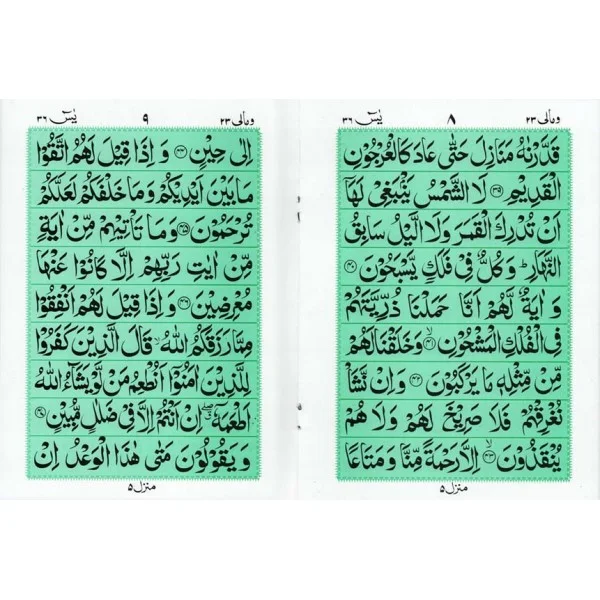 ومالى ٢٣
٨
يٰسٓ ٣٦
قَدَّرْنٰهُ مَنَازِلَ حَتّٰى عَادَ كَالْعُرْجُوْنِ
الْقَدِيْمِ ﴿٣٩﴾ لَا الشَّمْسُ يَنْۢبَغِىْ لَهَاۤ
اَنْ تُدْرِكَ الْقَمَرَ وَلَا الَّيْلُ سَابِقُ
النَّهَارِ ؕ وَكُلٌّ فِىْ فَلَكٍ يَّسْبَحُوْنَ ﴿٤٠﴾
وَ اٰيَةٌ لَّهُمْ اَنَّا حَمَلْنَا ذُرِّيَّتَهُمْ
فِى الْفُلْكِ الْمَشْحُوْنِ ۙ﴿٤١﴾ وَخَلَقْنَا لَهُمْ
مِّنْ مِّثْلِهٖ مَا يَرْكَبُوْنَ ﴿٤٢﴾ وَاِنْ نَّشَاْ
نُغْرِقْهُمْ فَلَا صَرِيْخَ لَهُمْ وَلَا هُمْ
يُنْقَذُوْنَ ۙ﴿٤٣﴾ اِلَّا رَحْمَةً مِّنَّا وَمَتَاعًا
منزل ٥
ومالى ٢٣
٩
يٰسٓ ٣٦
اِلٰى حِيْنٍ ﴿٤٤﴾ وَ اِذَا قِيْلَ لَهُمُ اتَّقُوْا
مَا بَيْنَ اَيْدِيْكُمْ وَمَا خَلْفَكُمْ لَعَلَّكُمْ
تُرْحَمُوْنَ ﴿٤٥﴾ وَمَا تَاْتِيْهِمْ مِّنْ اٰيَةٍ
مِّنْ اٰيٰتِ رَبِّهِمْ اِلَّا كَانُوْا عَنْهَا
مُعْرِضِيْنَ ﴿٤٦﴾ وَاِذَا قِيْلَ لَهُمْ اَنْفِقُوْا
مِمَّا رَزَقَكُمُ اللّٰهُ ۙ قَالَ الَّذِيْنَ كَفَرُوْا
لِلَّذِيْنَ اٰمَنُوْۤا اَنُطْعِمُ مَنْ لَّوْ يَشَآءُ اللّٰهُ
اَطْعَمَهٗۤ ۖ اِنْ اَنْتُمْ اِلَّا فِىْ ضَلٰلٍ مُّبِيْنٍ ﴿٤٧﴾
وَ يَقُوْلُوْنَ مَتٰى هٰذَا الْوَعْدُ اِنْ
منزل ٥